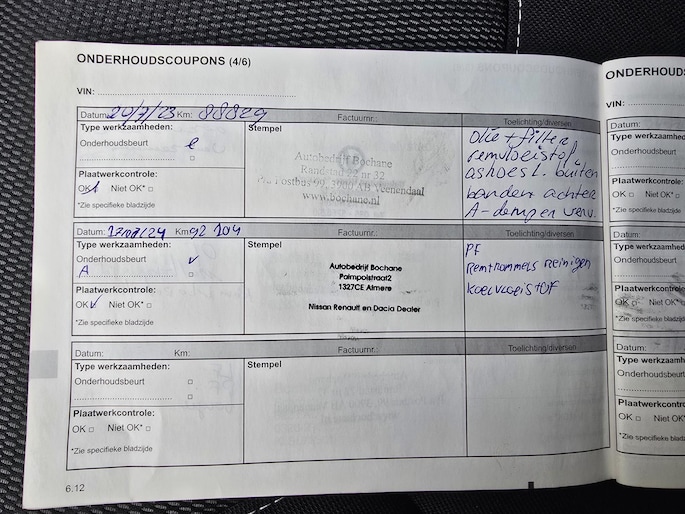 ONDERHOUDSCOUPONS (4/6)
VIN:
Datum: 20/7/23 Km: 88829 Factuurnr.: Toelichting/diversen
Type werkzaamheden: Stempel
Onderhoudsbeurt
Olie + filter
remvloeistof
ashoes L. buiten
banden achter
A-dempen verv.
Autobedrijf Bochane
Randstad 22 nr 32
Postbus 99, 3900 AB Veenendaal
www.bochane.nl
Plaatwerkcontrole:
OK Niet OK*
*Zie specifieke bladzijde
Datum: Km 92 104 Factuurnr.: Toelichting/diversen
Type werkzaamheden: Stempel
Onderhoudsbeurt v
A
PF
Remtrommels Reinigen
Koelvloeistof
Autobedrijf Bochane
Palmpolstraat2
1327CE Almere
Nissan Renault en Dacia Dealer
Plaatwerkcontrole:
OK v Niet OK*
*Zie specifieke bladzijde
Datum: Km: Factuurnr.: Toelichting/diversen
Type werkzaamheden: Stempel
Onderhoudsbeurt
Plaatwerkcontrole:
OK Niet OK*
*Zie specifieke bladzijde
6.12
ONDERHOUDS
VIN:
Datum:
Type werkzaamhed
Onderhoudsbeurt
Plaatwerkcontro
OK Niet OK
*Zie specifieke bladz
Datum:
Type werkzaamhe
Onderhoudsbeurt
Plaatwerkcontro
OK Niet O
*Zie specifieke blad
Datum:
Type werkzaamh
Onderhoudsbeurt
Plaatwerkcontro
OK Niet
*Zie specifieke bla